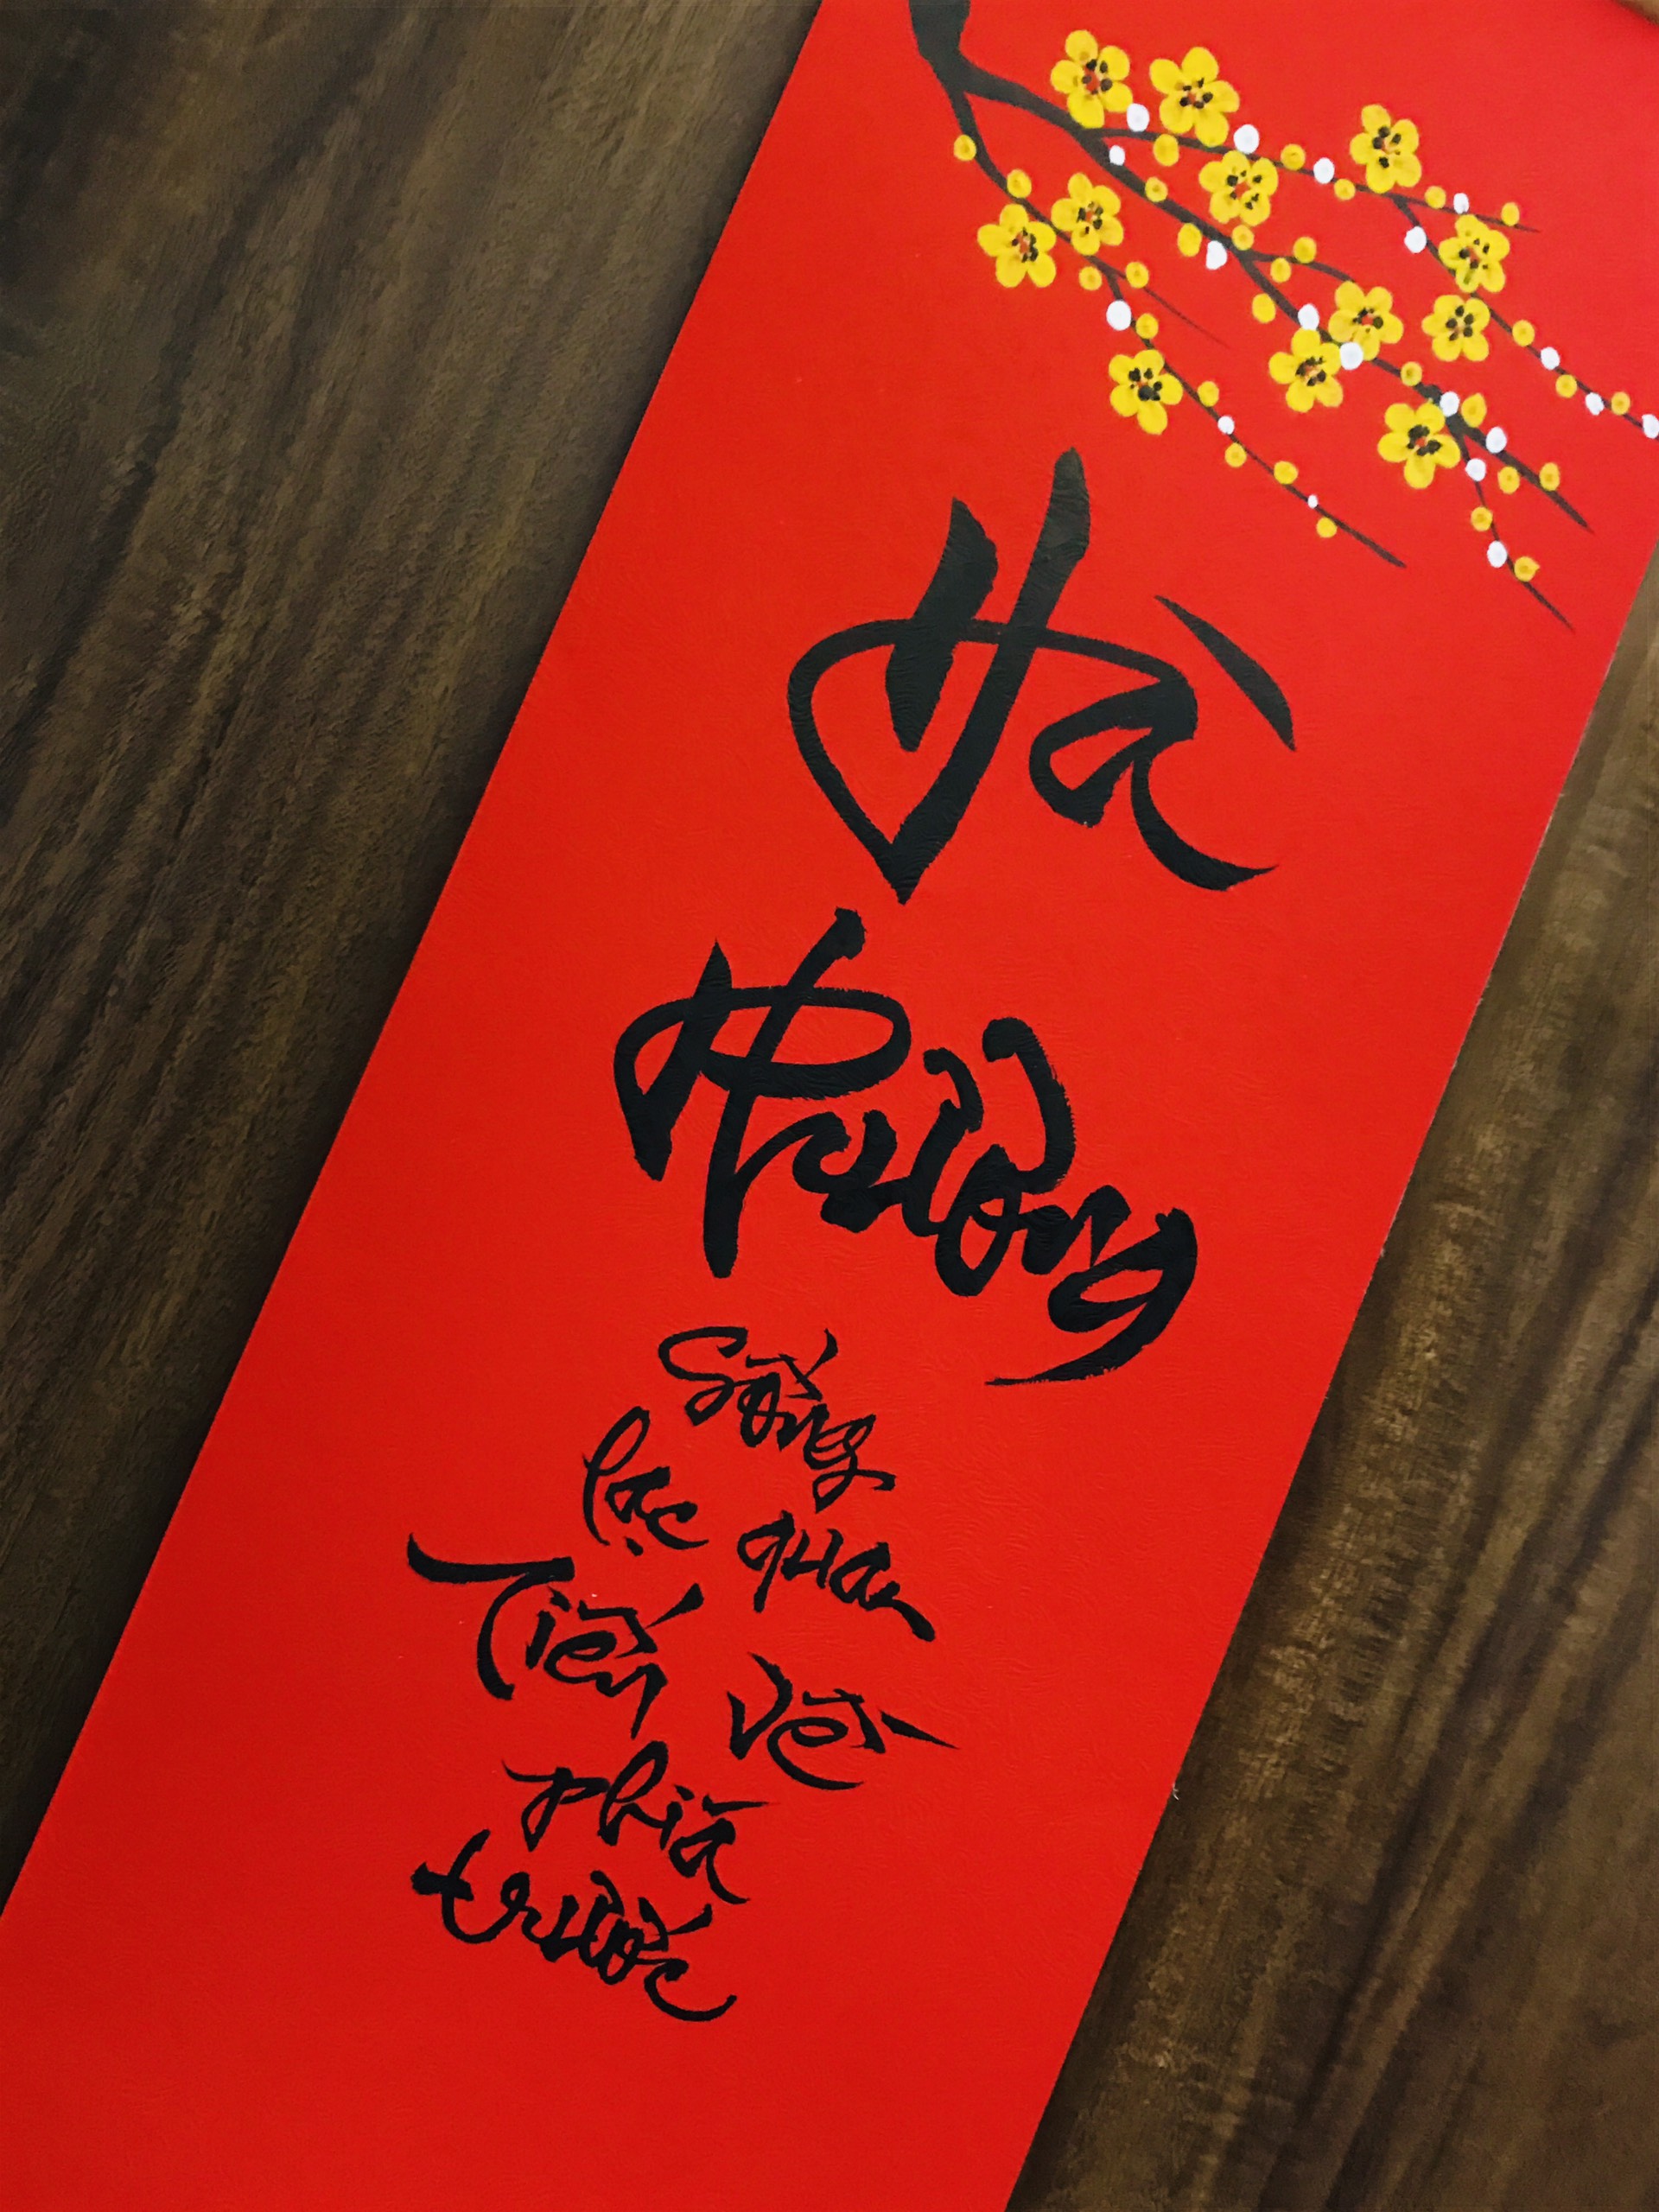 Hà
Phương
Sống
lạc quan
Tiến về
phía
trước